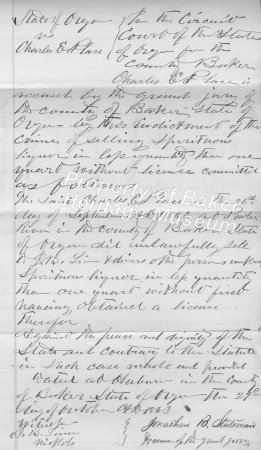 State of Oregon
vs
Charles E A Place
In the Circuit
Court of the State
of Oregon for the
County Baker
Charles E A Place is
accused by the grand jury of
the county of Baker State of
Oregon by this indictment of the
crime of selling Spirituous
liquor in less quantity than one
quart without license committed
as follows
The said Charles E A Place on the
day of September A D at Powder
River in the county of Baker State
of Oregon did unlawfully sell
to & divers other persons
Spirituous liquor in less quantity
than one quart without first
having obtained a license
therefor
Against the peace and dignity of the
State and contrary to the Statute
in such case made and provided
Dated at Auburn in the County
of Baker State of Oregon the 29th
day of October A D 1863
Witnesses
Jonathan B.
Foreman of the grand jury
Property of Baker
Museum